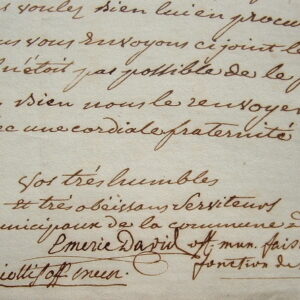 voulez bien lui en procu
ous vous envoyons cijoint le
n'étoit pas possible de le p
bien nous le renvoyer
ec une cordiale fraternité
vos très humbles
et très obéissans serviteurs
unicipaux de la commune
Emeric David off. mun. fais
fonction de
off mun.